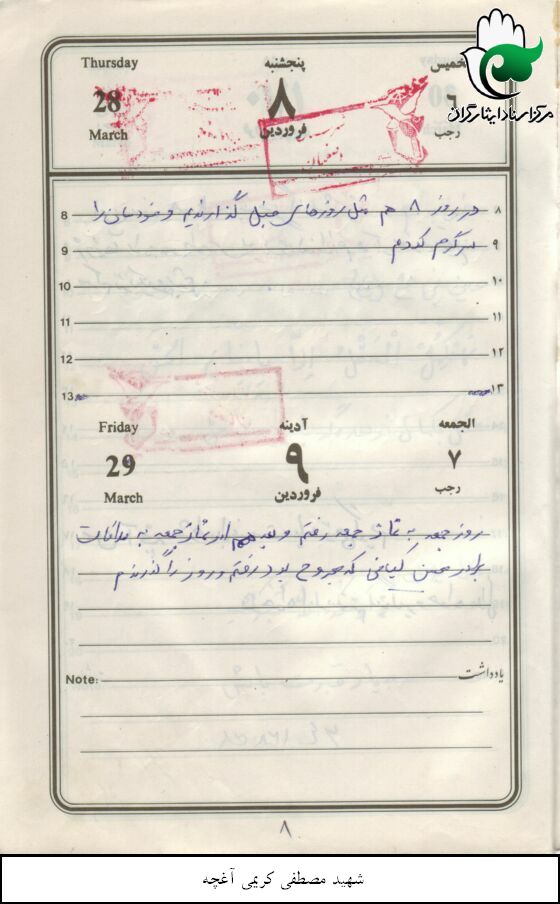 مرکز اسناد ایثارگران
Thursday پنجشنبه الخمیس
28 ۸ ۶
March فروردین رجب
8 در روز ۸ هم مثل روزهای قبل گذراندیم و خودمان را ۸
9 سرگرم کردم ۹
10 ۱۰
11 ۱۱
12 ۱۲
13 ۱۳
Friday آدینه الجمعه
29 ۹ ۷
March فروردین رجب
روز جمعه به نماز جمعه رفتم و بعد از نماز جمعه به ملاقات
برادر کیانی که مجروح بود رفتم و روز را گذراندم
Note: یادداشت
۸
شهید مصطفی کریمی آغچه